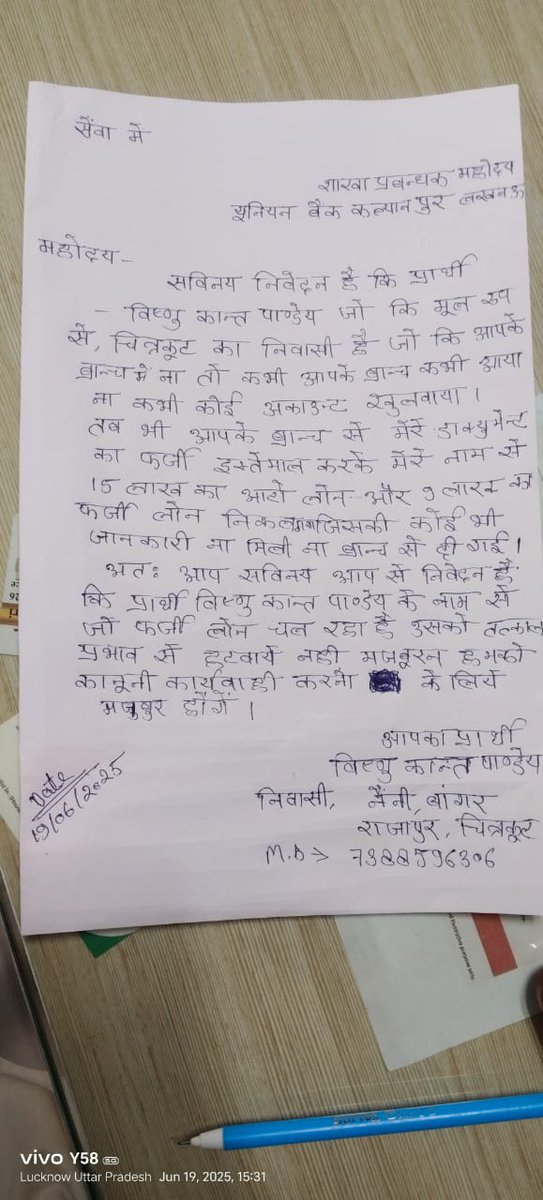 सेंवा में
शाखा प्रबन्धक महोदय
यूनियन बैंक कल्यानपुर लखनऊ
महोदय-
सविनय निवेदन है कि प्रार्थी
- विष्णु कान्त पाण्डेय जो कि मूल रूप
से, चित्रकूट का निवासी है जो कि आपके
ब्रान्च में ना तो कभी आपके ब्रान्च कभी आया
ना कभी कोई अकाउन्ट खुलवाया।
तब भी आपके ब्रान्च से मेरे डाक्युमेन्ट
का फर्जी इस्तेमाल करके मेरे नाम से
15 लाख का आटो लोन और 9 लाख का
फर्जी लोन जिसकी कोई भी
जानकारी ना मिली ना ब्रान्च से दी गई।
अतः आप सविनय आप से निवेदन है
कि प्रार्थी विष्णु कान्त पाण्डेय के नाम से
जो फर्जी लोन चल रहा है उसको तत्काल
प्रभाव से हटवाये नही मजबूरन हमको
कानूनी कार्यवाही करना के लिये
मजबुर होंगें।
आपका प्रार्थी
विष्णु कान्त पाण्डेय
निवासी, नैनी, बांगर
राजापुर, चित्रकूट
M.D→ 7388596306
Date
19/06/2025
vivo Y58 5G
Lucknow Uttar Pradesh Jun 19, 2025, 15:31